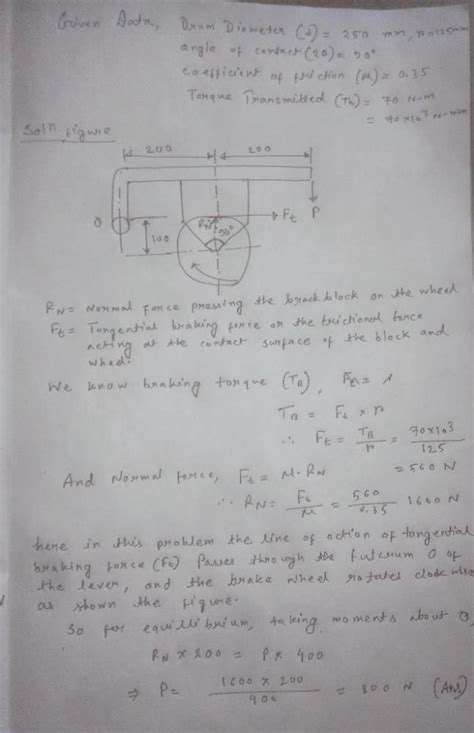 Given Data, Drum Diameter (d) = 250 mm, r=125mm
angle of contact (2θ) = 90°
coefficient of friction (μ) = 0.35
Torque Transmitted (TB) = 70 N-m
= 70×10³ N-mm
Soln figure
200 200
O RN 90° Ft P
100
RN = Normal force pressing the brack block on the wheel
Ft = Tangential braking force or the frictional force
acting at the contact surface of the block and
wheel.
We know braking torque (TB),
TB = Ft × r
∴ Ft = TB/r = 70×10³/125
= 560 N
And Normal force, Ft = μ.RN
∴ RN = Ft/μ = 560/0.35 1600 N
here in this problem the line of action of tangential
braking force (Ft) Passes through the fulcrum O of
the lever, and the brake wheel rotates clock wise
as shown the figure.
So for equillibrium, taking moments about O,
RN × 200 = P × 400
⇒ P = 1600 × 200/400 = 800 N (Ans)